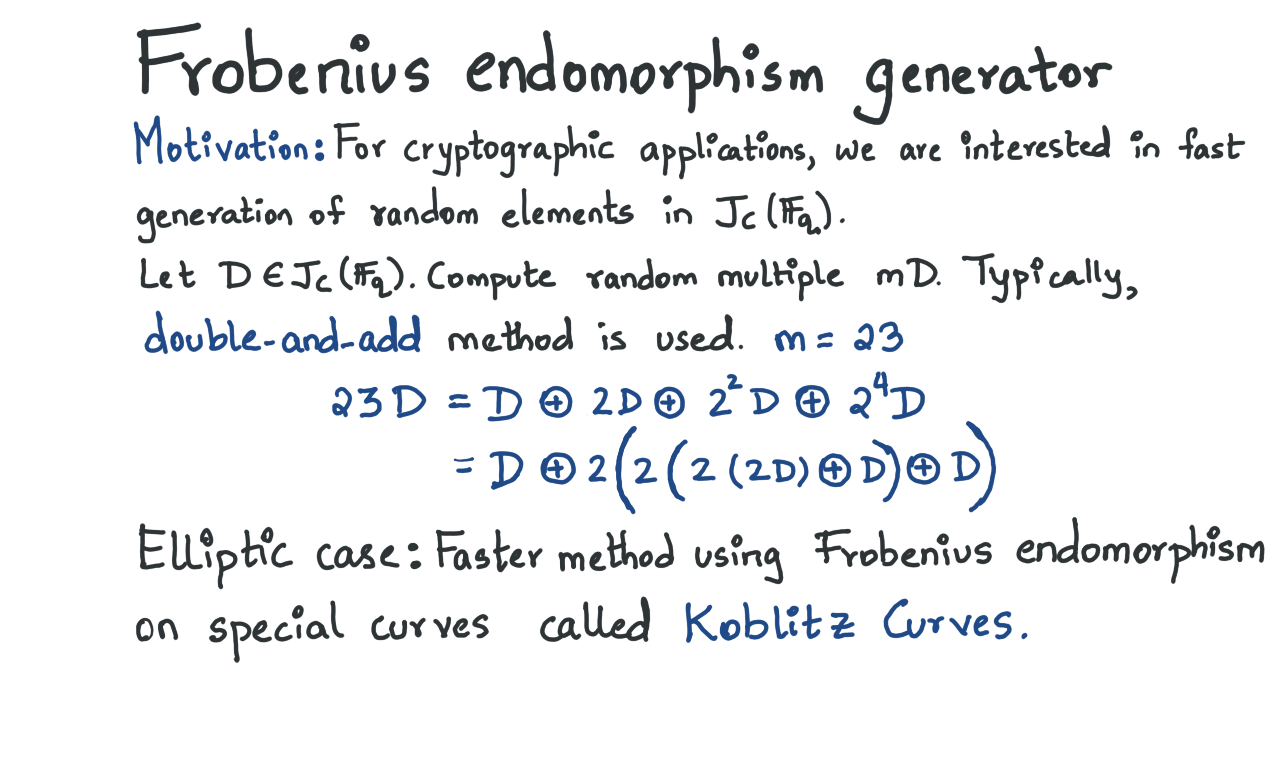 Frobenius endomorphism generator
Motivation: For cryptographic applications, we are interested in fast
generation of random elements in J_C(𝔽_q).
Let D ∈ J_C(𝔽_q). Compute random multiple mD. Typically,
double-and-add method is used. m = 23
23D = D ⊕ 2D ⊕ 2²D ⊕ 2⁴D
= D ⊕ 2(2(2(2D) ⊕ D) ⊕ D)
Elliptic case: Faster method using Frobenius endomorphism
on special curves called Koblitz Curves.